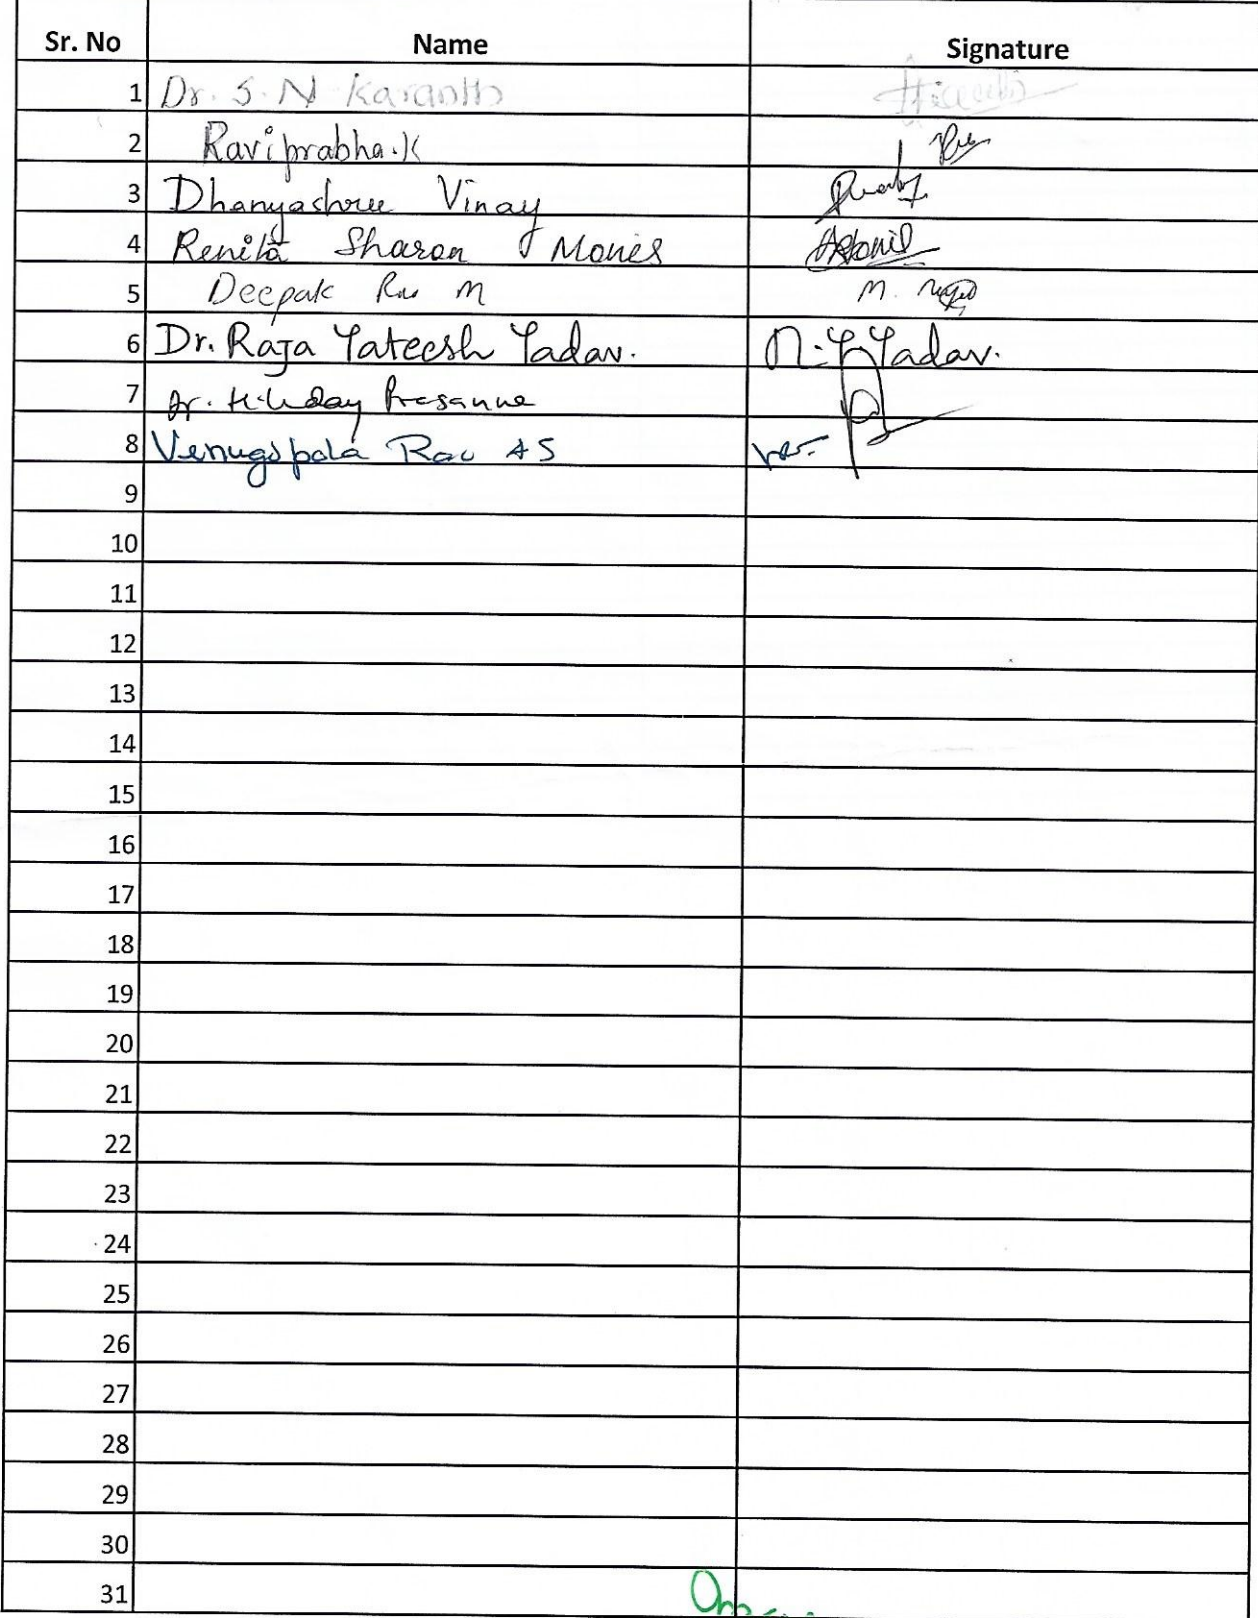 Sr. No Name Signature
1 Dr. S. N Karanth
2 Raviprabha.K
3 Dhanyashree Vinay
4 Renita Sharon Monies
5 Deepak Rao M M.
6 Dr. Raja Yateesh Yadav. N.Y.Yadav.
7 Dr. H. Uday Prasanna
8 Venugopala Rao A S
9
10
11
12
13
14
15
16
17
18
19
20
21
22
23
24
25
26
27
28
29
30
31